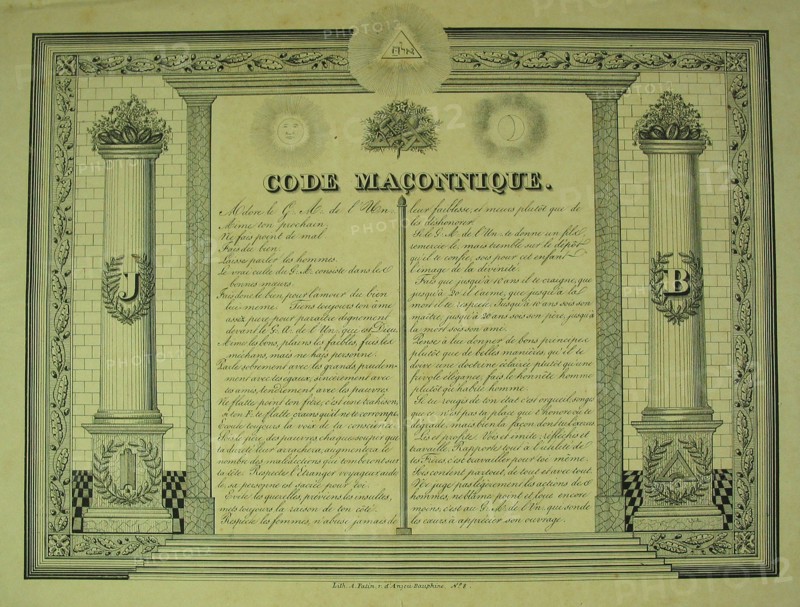 CODE MAÇONNIQUE.
Adore le G. A. de l'Un.
Aime ton prochain
Ne fais point de mal
Fais du bien
Laisse parler les hommes.
Le vrai culte du G. A. consiste dans les
bonnes mœurs
Fais donc le bien pour l'amour du bien
lui même. Tiens toujours ton âme
assez pure pour paraître dignement
devant le G. A. de l'Un. qui est Dieu.
Aime les bons, plains les faibles, fuis les
méchans, mais ne hais personne.
Parle sobrement avec les grands, prudem-
ment avec tes égaux, sincèrement avec
tes amis, tendrement avec les pauvres
Ne flatte point ton frère, c'est une trahison,
si ton F. te flatte crains qu'il ne te corrompe.
Ecoute toujours la voix de ta conscience.
Sois le père des pauvres chaque soupir que
ta dureté leur arrachera, augmentera le
nombre des malédictions qui tomberont sur
ta tête. Respecte l'étranger voyageur aide
le, sa personne est sacrée pour toi.
Evite les querelles, préviens les insultes,
mets toujours la raison de ton côté.
Respecte les femmes, n'abuse jamais de
leur faiblesse, et meurs plutôt que de
les déshonorer.
Si le G. A. de l'Un. te donne un fils,
remercie le, mais tremble sur le dépôt
qu'il te confie, sois pour cet enfant
l'image de la divinité.
Fais que jusqu'à 10 ans il te craigne, que
jusqu'à 20 il t'aime, que jusqu'à la
mort il te respecte. Jusqu'à 10 ans sois son
maître, jusqu'à 20 ans sois son père, jusqu'à
la mort sois son ami.
Pense à lui donner de bons principes
plutôt que de belles manières, qu'il te
doive une doctrine éclairée plutôt qu'une
frivole élégance, fais le honnête homme
plutôt que habile homme.
Si tu rougis de ton état c'est orgueil, songe
que ce n'est pas ta place que t'honore où te
dégrade, mais bien la façon dont tu l'exerces
Lis et profite. Vois et imite, réfléchis et
travaille. Rapporte tout à l'utilité de
tes Frères, c'est travailler pour toi même.
Sois content partout, de tout et avec tout.
Ne juge pas légèrement les actions des
hommes, ne blâme point et loue encore
moins, c'est au G. A. de l'Un. qui sonde
les cœurs à apprécier son ouvrage.
J
B
Lith. A. Patin, r. d'Anjou Dauphine, No. 8.
PHOTO12